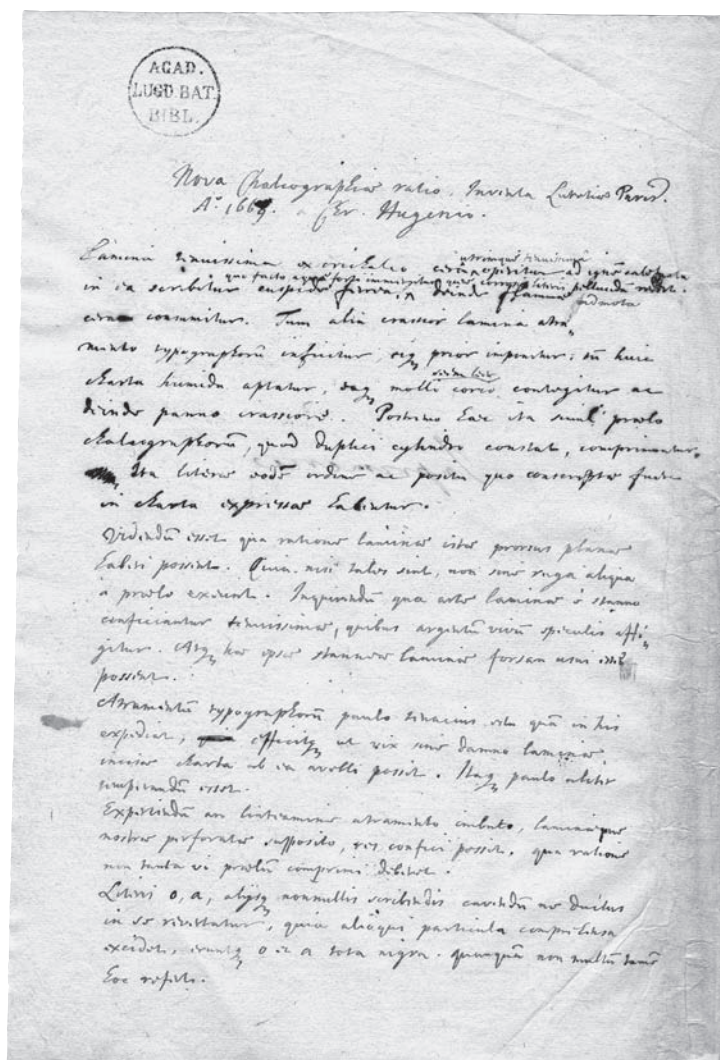 ACAD.
LUGD. BAT.
BIBL.
Nova Chalcographiæ ratio. Inventa Lutetiæ Paris.
Aº. 1669. a Chr. Hugenio.
utrimque tenuissime
Lamina tenuissima ex orichalco cera operitur ad ignē calefacta
quo facto aquæ forti immergitur quæ literis
in ea scribitur cuspide ferrea, deinde flammæ admota
cera consumitur. Tum alia crassior lamina atra-
mento typographorū inficitur, eiq3 prior imponitur; tū huic
charta humida aptatur, eaq3 molli corio contegitur ac
deinde panno crassiore. Postremo hæc ita simul prælo
chalcographorū, quod duplici cylindro constat, comprimuntur.
Ita literæ eodē ordine ac positu quo conscriptæ fuere
in charta expressæ habentur.
Videndū esset qua ratione laminæ istæ prorsus planæ
haberi possent. Quia nisi tales sint, non sine ruga aliqua
a prælo exeunt. Inquirendū qua arte laminæ e stanno
conficiantur tenuissimæ, quibus argentū vivū speculis affi-
gitur. Atq3 hæ ipsæ stanneæ laminæ forsan usui esse
possent.
Atramentū typographorū paulo tenacius est quā in his
expediat, efficitq3 ut vix sine damno laminæ
incisæ charta ab ea avelli possit. Itaq3 paulo aliter
temperandū esset.
Experiendū an linteamine atramento imbuto, laminæque
nostræ perforatæ supposito, res confici posset, qua ratione
non tanta vi prælū comprimi deberet.
Literis o, a, alijsq3 nonnullis scribendis cavendū ne ductus
in se revertatur, quia alioqui particula comprehensa
excidet, eruntq3 o et a tota nigra. quanquam non multū tamē
hoc refert.